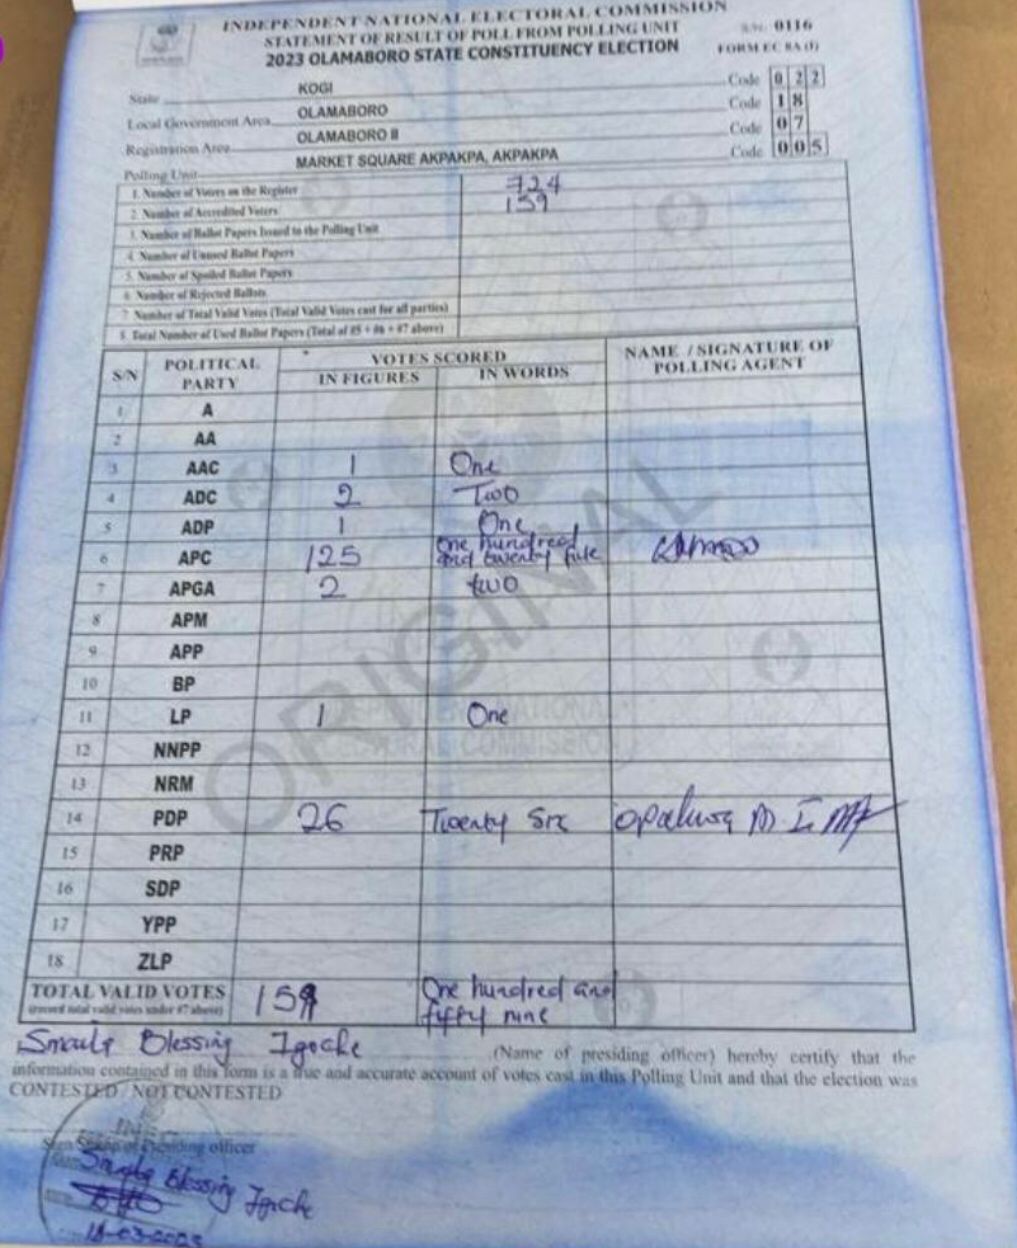 INDEPENDENT NATIONAL ELECTORAL COMMISSION
STATEMENT OF RESULT OF POLL FROM POLLING UNIT
2023 OLAMABORO STATE CONSTITUENCY ELECTION
S/N. 0116
FORM EC 8A (I)
State KOGI Code 0 2 2
Local Government Area OLAMABORO Code 1 8
Registration Area OLAMABORO II Code 0 7
Polling Unit MARKET SQUARE AKPAKPA, AKPAKPA Code 0 0 5
1. Number of Voters on the Register 724
2. Number of Accredited Voters 159
3. Number of Ballot Papers Issued to the Polling Unit
4. Number of Unused Ballot Papers
5. Number of Spoiled Ballot Papers
6. Number of Rejected Ballots
7. Number of Total Valid Votes (Total Valid Votes cast for all parties)
8. Total Number of Used Ballot Papers (Total of #5 + #6 + #7 above)
S/N POLITICAL PARTY VOTES SCORED NAME / SIGNATURE OF POLLING AGENT
IN FIGURES IN WORDS
1 A
2 AA
3 AAC 1 One
4 ADC 2 Two
5 ADP 1 One
6 APC 125 One hundred and twenty five
7 APGA 2 two
8 APM
9 APP
10 BP
11 LP 1 One
12 NNPP
13 NRM
14 PDP 26 Twenty Six
15 PRP
16 SDP
17 YPP
18 ZLP
TOTAL VALID VOTES 159 One hundred and fifty nine
(record total valid votes under #7 above)
Blessing Igoche (Name of presiding officer) hereby certify that the
information contained in this form is a true and accurate account of votes cast in this Polling Unit and that the election was
CONTESTED / NOT CONTESTED
Presiding officer
Blessing Igoche
18-03-2023
ORIGINAL